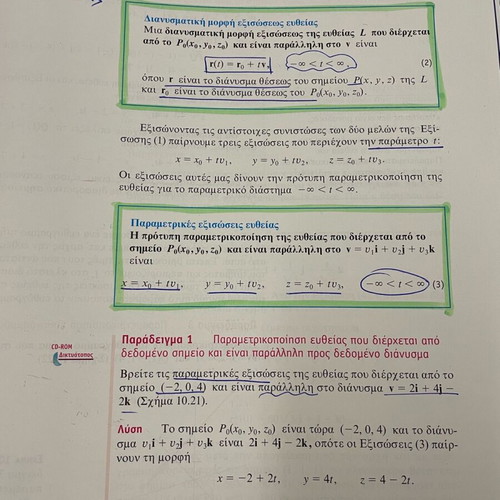 Διανυσματική μορφή εξισώσεως ευθείας
Μια διανυσματική μορφή εξισώσεως της ευθείας L που διέρχεται
από το P₀(x₀, y₀, z₀) και είναι παράλληλη στο v είναι
r(t) = r₀ + tv, −∞ < t < ∞, (2)
όπου r είναι το διάνυσμα θέσεως του σημείου P(x, y, z) της L
και r₀ είναι το διάνυσμα θέσεως του P₀(x₀, y₀, z₀).
Εξισώνοντας τις αντίστοιχες συνιστώσες των δύο μελών της Εξί-
σωσης (1) παίρνουμε τρεις εξισώσεις που περιέχουν την παράμετρο t:
x = x₀ + tυ₁, y = y₀ + tυ₂, z = z₀ + tυ₃.
Οι εξισώσεις αυτές μας δίνουν την πρότυπη παραμετρικοποίηση της
ευθείας για το παραμετρικό διάστημα −∞ < t < ∞.
Παραμετρικές εξισώσεις ευθείας
Η πρότυπη παραμετρικοποίηση της ευθείας που διέρχεται από το
σημείο P₀(x₀, y₀, z₀) και είναι παράλληλη στο v = υ₁i + υ₂j + υ₃k
είναι
x = x₀ + tυ₁, y = y₀ + tυ₂, z = z₀ + tυ₃, −∞ < t < ∞ (3)
CD-ROM
Δικτυότοπος
Παράδειγμα 1 Παραμετρικοποίηση ευθείας που διέρχεται από
δεδομένο σημείο και είναι παράλληλη προς δεδομένο διάνυσμα
Βρείτε τις παραμετρικές εξισώσεις της ευθείας που διέρχεται από το
σημείο (−2, 0, 4) και είναι παράλληλη στο διάνυσμα v = 2i + 4j −
2k (Σχήμα 10.21).
Λύση Το σημείο P₀(x₀, y₀, z₀) είναι τώρα (−2, 0, 4) και το διάνυ-
σμα υ₁i + υ₂j + υ₃k είναι 2i + 4j − 2k, οπότε οι Εξισώσεις (3) παίρ-
νουν τη μορφή
x = −2 + 2t, y = 4t, z = 4 − 2t.